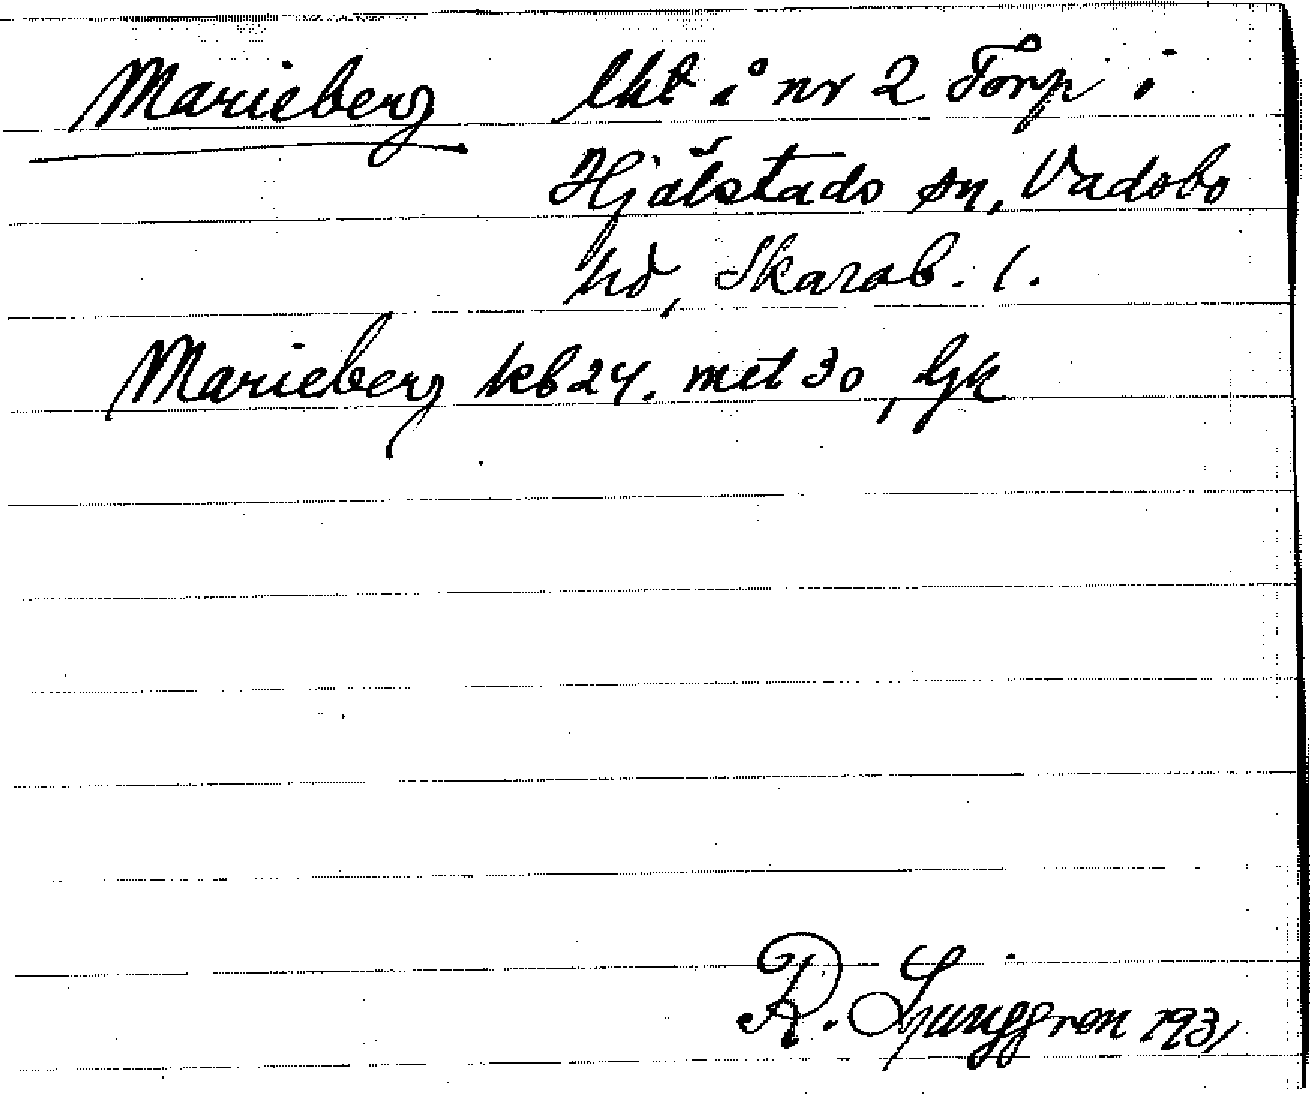 Marieberg lht i nr 2 Torp i
Hjälstads sn, Vadsbo
hd, Skarab. l.
Marieberg kb 24. met 30, Gk
R. Ljunggren 1931